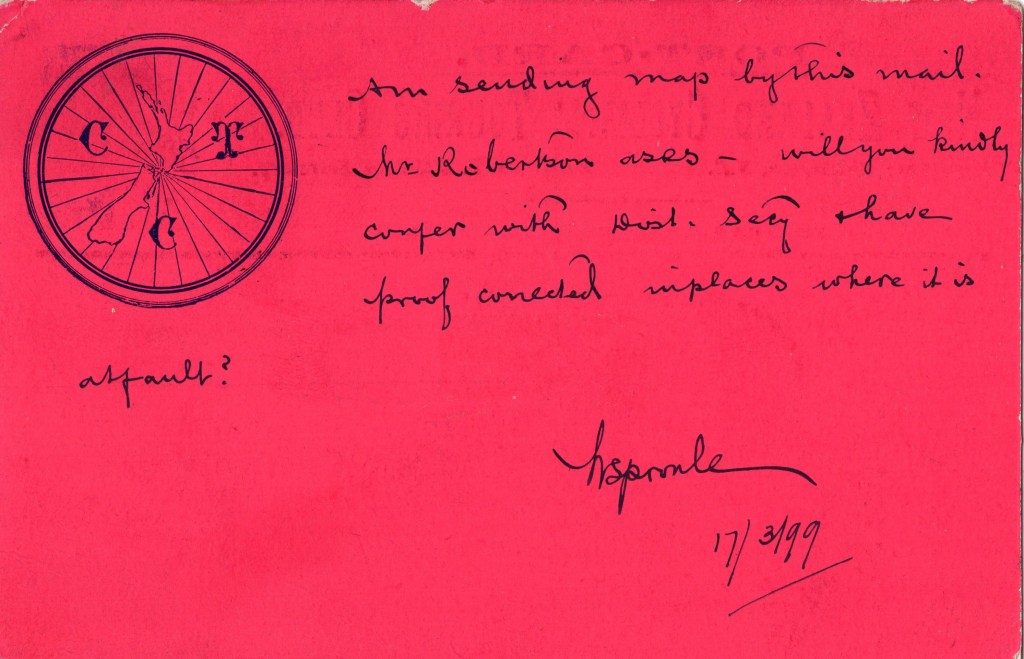 C T
C
Am sending map by this mail.
Mr Robertson asks – will you kindly
confer with Dist. Secy & have
proof corrected in places where it is
at fault?
WSproule
17/3/99